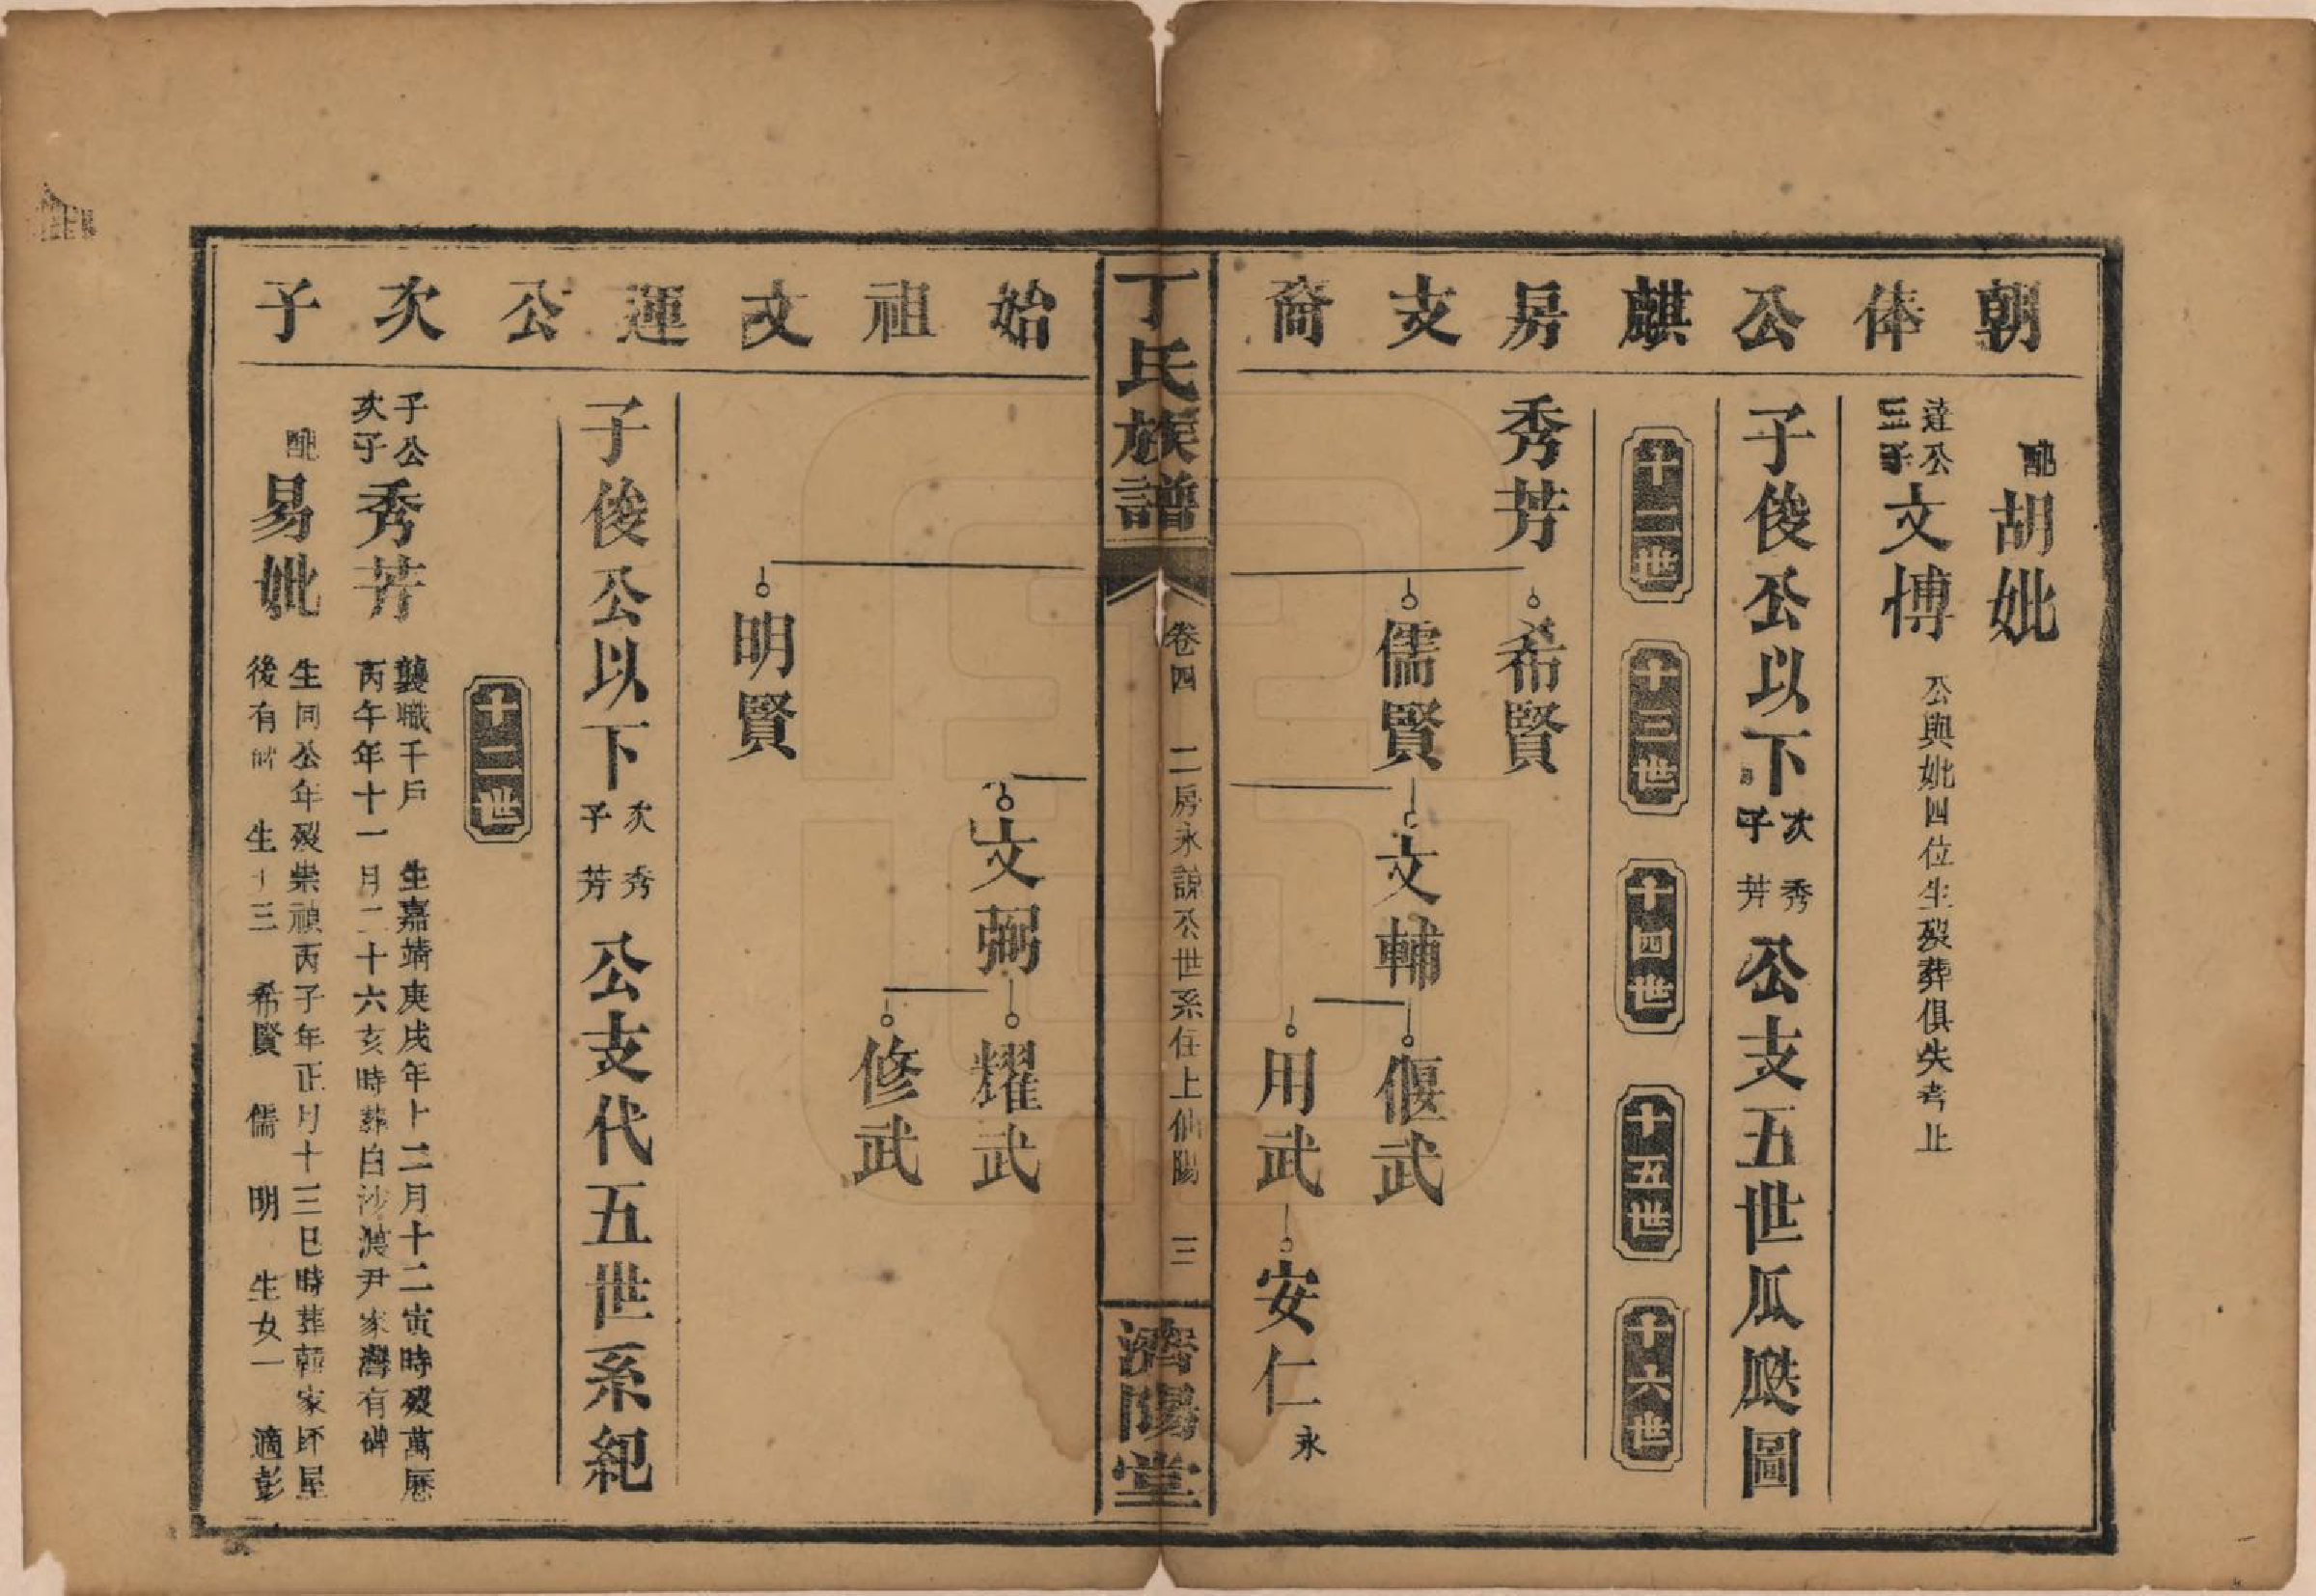 朝俸公麒房支裔
配胡妣
達公五子文博
公與妣四位生歿葬俱失考止
子俊公以下次子秀芳公支五世瓜瓞圖
十二世
十三世
十四世
十五世
十六世
秀芳
希賢
儒賢
文輔
偃武
用武
安仁
永
丁氏族譜
卷四
二房永諒公世系住上仙陽
三
濟陽堂
始祖文運公次子
文弼
耀武
修武
明賢
子俊公以下次子秀芳公支代五世系紀
十二世
子公次子秀芳
襲職千戶
生嘉靖庚戌年十二月十二寅時歿萬曆
丙午年十一月二十六亥時葬白沙渡尹家灣有碑
配易妣
生同公年歿崇禎丙子年正月十三巳時葬韓家坏屋
後有碑
生子三
希賢
儒
明
生女一
適彭